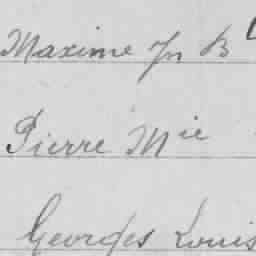 Maxime Jn B
Pierre Mie
Georges Louis